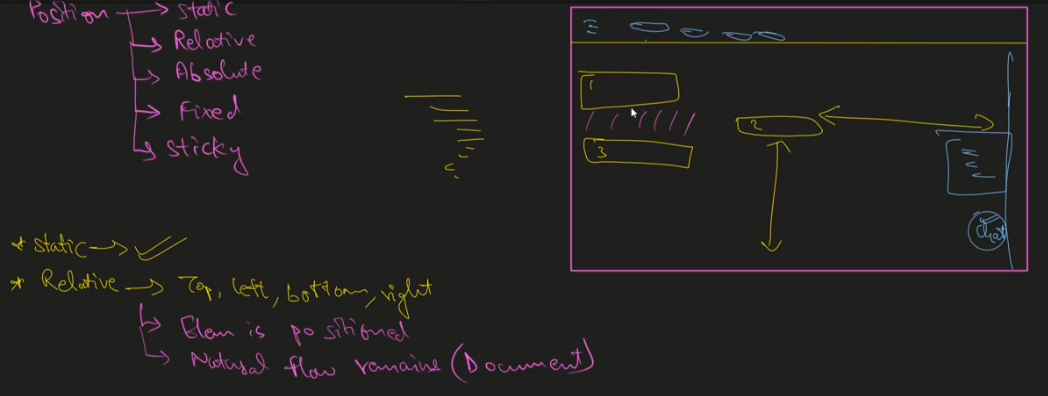 Position → Static
→ Relative
→ Absolute
→ Fixed
→ Sticky
1
2
3
Chat
* Static → ✓
* Relative → Top, left, bottom, right
→ Elem is positioned
→ Natural flow remains (Document)